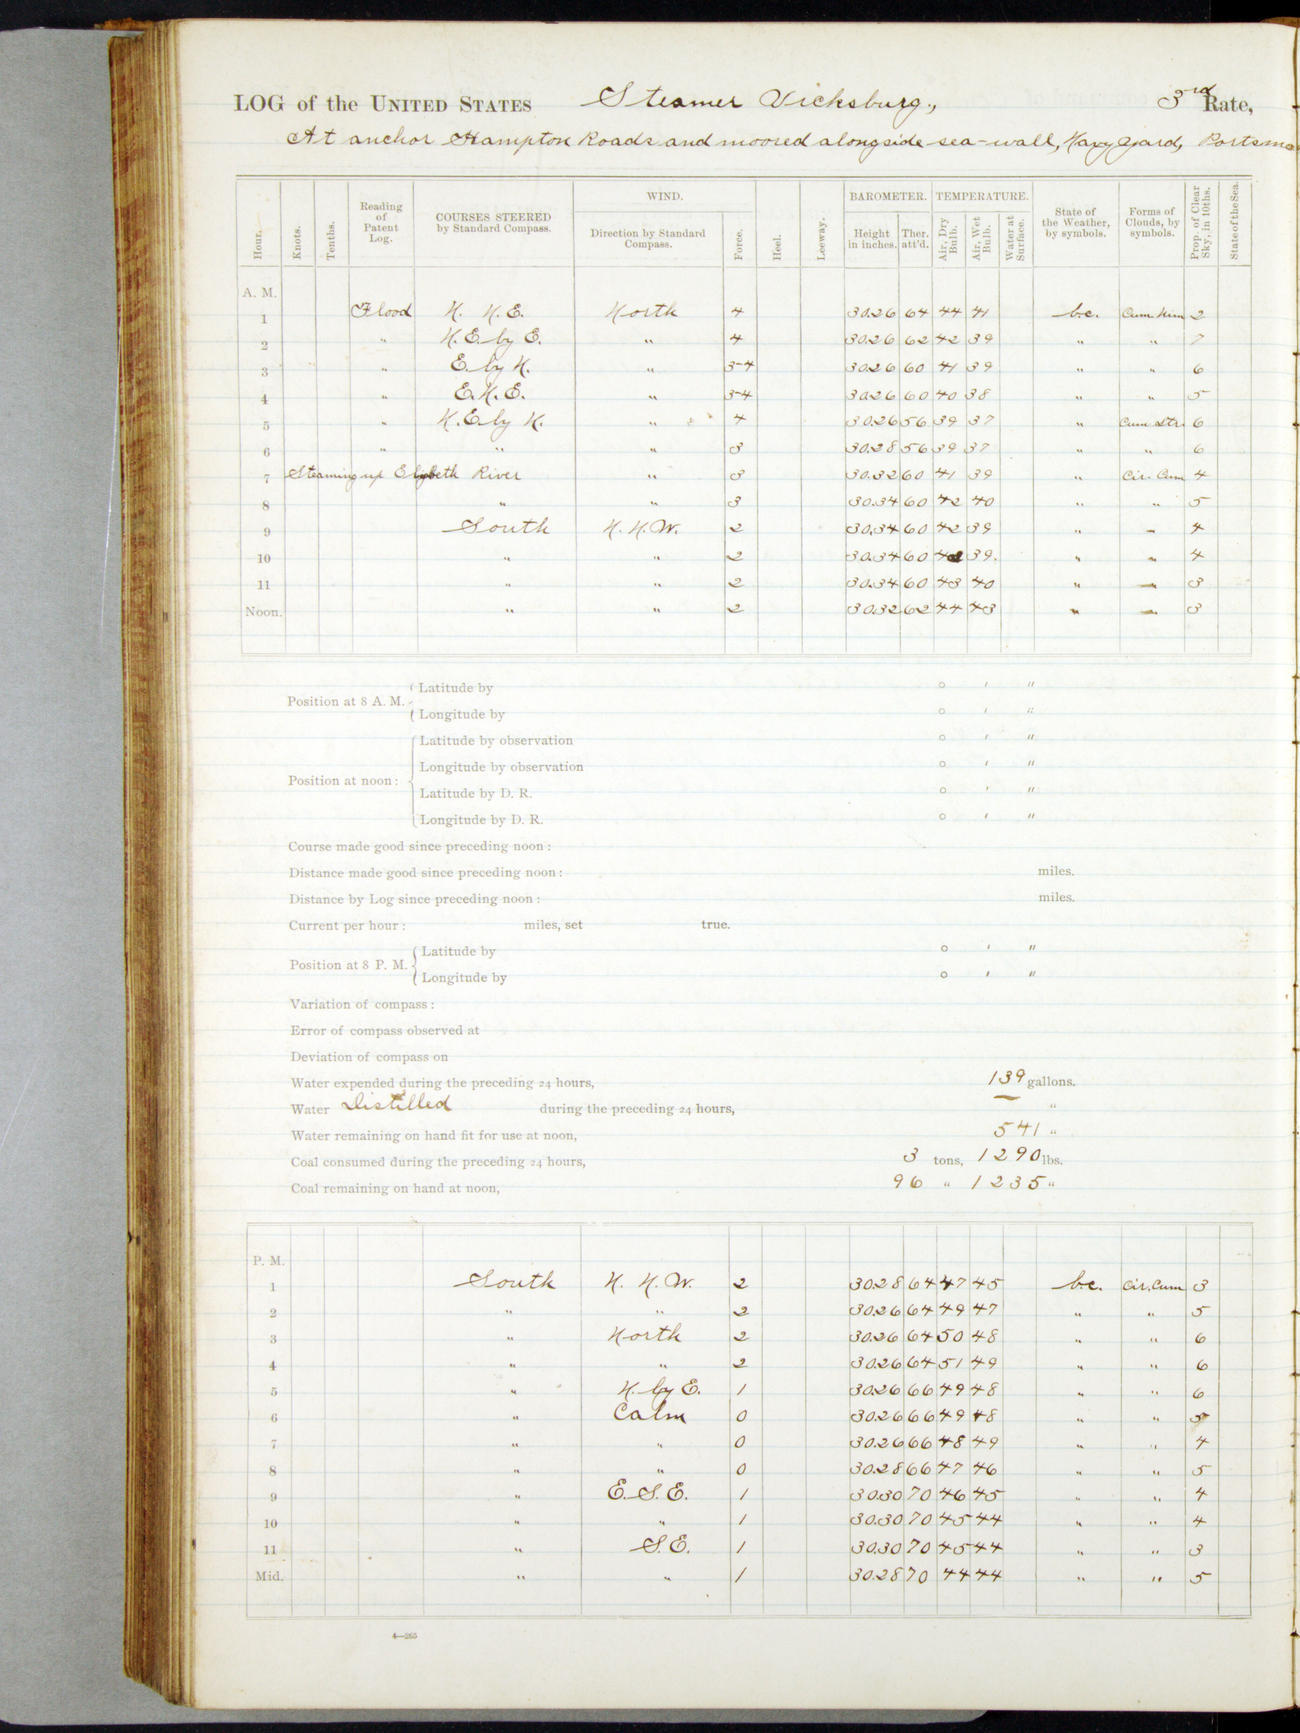 LOG of the UNITED STATES Steamer Vicksburg., 3rd Rate,
At anchor Hampton Roads and moored alongside sea-wall, Navy Yard, Portsmo
Hour. Knots. Tenths. Reading of Patent Log. COURSES STEERED by Standard Compass. WIND. Direction by Standard Compass. Force. Heel. Leeway. BAROMETER. Height in inches. Ther. att'd. TEMPERATURE. Air, Dry Bulb. Air, Wet Bulb. Water at Surface. State of the Weather, by symbols. Forms of Clouds, by symbols. Prop. of Clear Sky, in 10ths. State of the Sea.
A. M.
1 Flood N. N.E. North 4 30.26 64 44 41 b.c. Cum Nim 2
2 " N.E. by E. " 4 30.26 62 42 39 " " 7
3 " E. by N. " 3-4 30.26 60 41 39 " " 6
4 " E.N.E. " 3-4 30.26 60 40 38 " " 5
5 " N.E. by N. " 4 30.26 56 39 37 " Cum Str. 6
6 " " " 3 30.28 56 39 37 " " 6
7 Steaming up Elizbeth River " 3 30.32 60 41 39 " Cir. Cum 4
8 " " 3 30.34 60 42 40 " " 5
9 South N. N.W. 2 30.34 60 42 39 " " 4
10 " " 2 30.34 60 42 39. " " 4
11 " " 2 30.34 60 43 40 " " 3
Noon. " " 2 30.32 62 44 43 " " 3
Position at 8 A. M. Latitude by ° ′ ″
Longitude by ° ′ ″
Position at noon: Latitude by observation ° ′ ″
Longitude by observation ° ′ ″
Latitude by D. R. ° ′ ″
Longitude by D. R. ° ′ ″
Course made good since preceding noon :
Distance made good since preceding noon : miles.
Distance by Log since preceding noon : miles.
Current per hour : miles, set true.
Position at 8 P. M. Latitude by ° ′ ″
Longitude by ° ′ ″
Variation of compass :
Error of compass observed at
Deviation of compass on
Water expended during the preceding 24 hours, 139 gallons.
Water Distilled during the preceding 24 hours, — "
Water remaining on hand fit for use at noon, 541 "
Coal consumed during the preceding 24 hours, 3 tons, 1290 lbs.
Coal remaining on hand at noon, 96 " 1235 "
P. M.
1 South N. N.W. 2 30.28 64 47 45 b.c. Cir. Cum 3
2 " " 2 30.26 64 49 47 " " 5
3 " North 2 30.26 64 50 48 " " 6
4 " " 2 30.26 64 51 49 " " 6
5 " N. by E. 1 30.26 66 49 48 " " 6
6 " Calm 0 30.26 66 49 48 " " 5
7 " " 0 30.26 66 48 49 " " 4
8 " " 0 30.28 66 47 46 " " 5
9 " E.S.E. 1 30.30 70 46 45 " " 4
10 " " 1 30.30 70 45 44 " " 4
11 " S.E. 1 30.30 70 45 44 " " 3
Mid. " " 1 30.28 70 44 44 " " 5
4—265